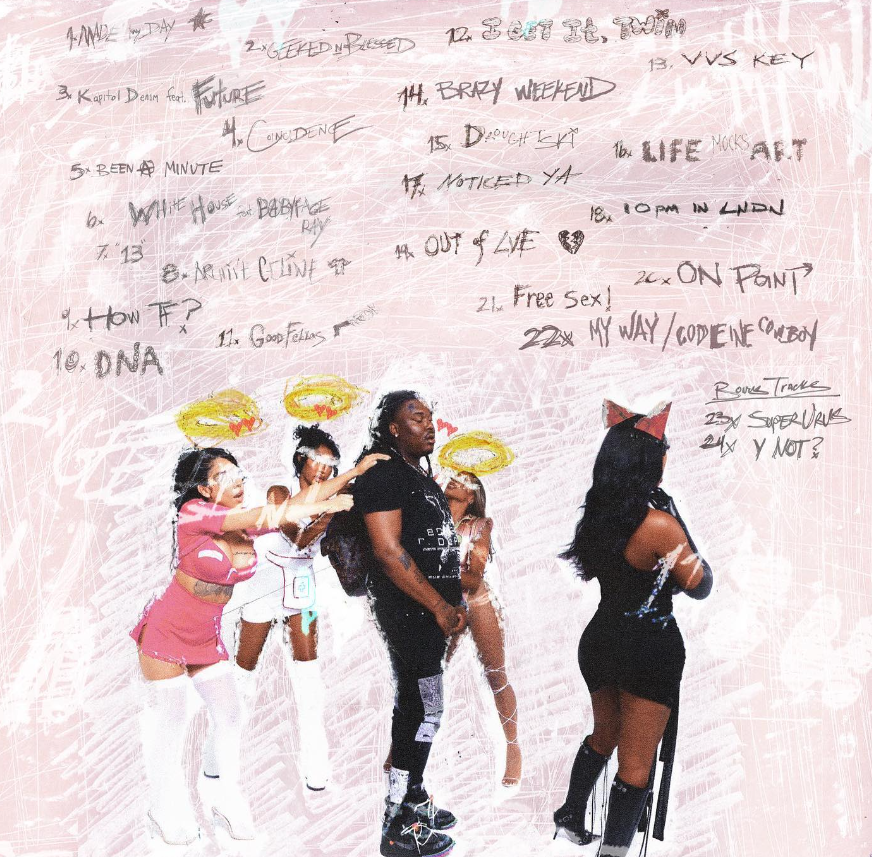 1x MADE my DAY
2x GEEKED N BLESSED
3x Kapitol Denim feat. FUTURE
4x COINCIDENCE
5x BEEN A MINUTE
6x WHITE HOUSE feat BABYFACE
RAY
7. "13"
8x
9x HOW TF?
10x DNA
11x GOODFELLAS
12x I GET It, TWiN
13. VVS KEY
14x BRAZY WEEKEND
15x
16x LIFE MOCKS ART
17x NOTICED YA
18x 10pm IN LNDN
19x OUT of LVE
20x ON POINT
21x Free Sex!
22x MY WAY/CODEINE COWBOY
Bonus Tracks
23x SUPERVRUS
24x Y NOT?